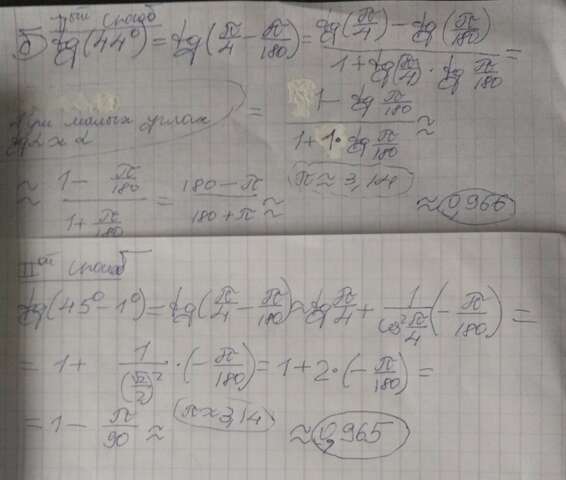 Iый способ
б) tg(44°) = tg(π/4 − π/180) = (tg(π/4) − tg(π/180)) / (1 + tg(π/4) · tg π/180) =
при малых углах
tg α ≈ α
= (1 − tg π/180) / (1 + 1 · tg π/180) ≈
≈ (1 − π/180) / (1 + π/180) = (180 − π) / (180 + π) ≈ π ≈ 3,14 ≈ 0,966
IIой способ
tg(45° − 1°) = tg(π/4 − π/180) ≈ tg π/4 + 1/(cos² π/4) (− π/180) =
= 1 + 1/(√2/2)² · (− π/180) = 1 + 2 · (− π/180) =
= 1 − π/90 ≈ π ≈ 3,14 ≈ 0,965